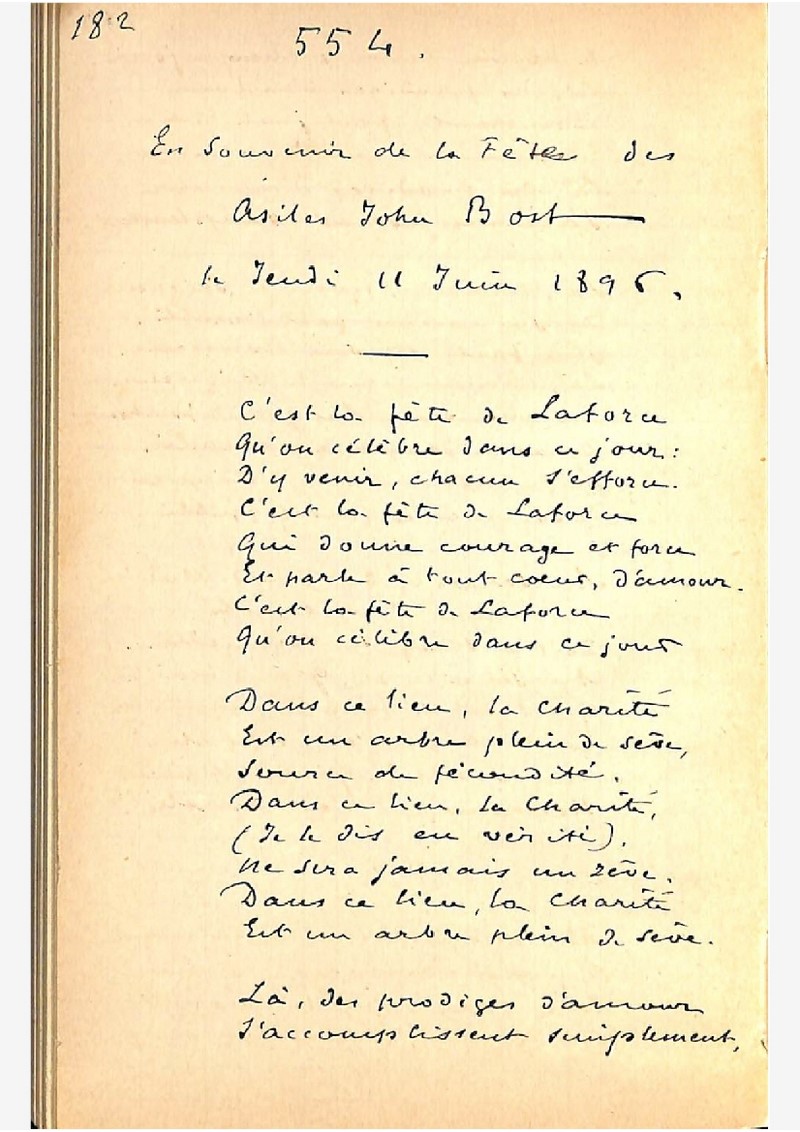 182
554.
En souvenir de la Fête des
Asiles John Bost
le Jeudi 11 Juin 1896.
C'est la fête de Laforce
Qu'on célèbre dans ce jour:
D'y venir, chacun s'efforce.
C'est la fête de Laforce
Qui donne courage et force
Et parle à tout coeur, d'amour.
C'est la fête de Laforce
Qu'on célèbre dans ce jour
Dans ce lieu, la Charité
Est un arbre plein de sève,
Source de fécondité.
Dans ce lieu, la Charité,
(Je le dis en vérité),
Ne sera jamais un rêve.
Dans ce lieu, la Charité
Est un arbre plein de sève.
Là, des prodiges d'amour
S'accomplissent simplement,